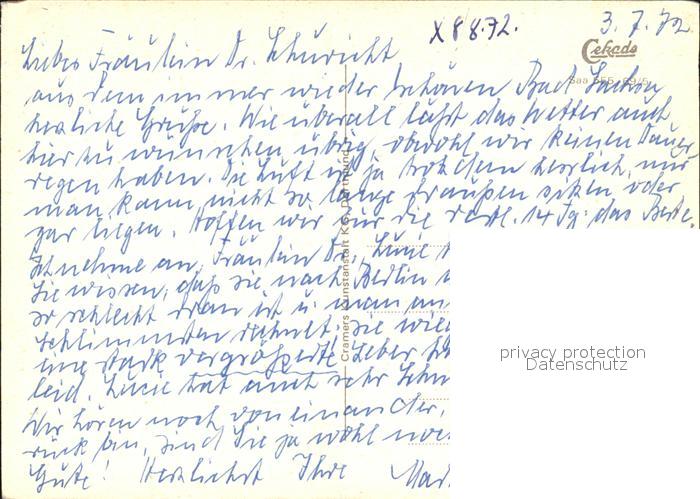 X 8 8.72.
3. 7. 72
Cekade
Liebes Fräulein Dr. Schuricht
aus dem immer wieder schönen Bad Sachsa
herzliche Grüße. Wie überall läßt das Wetter auch
hier zu wünschen übrig, obwohl wir keinen Dauer
regen haben. Die Luft ist ja trotzdem herrlich, nur
man kann nicht so lange draußen sitzen oder
gar liegen. Hoffen wir für die restl. 14 Tg. das Beste.
Ich nehme an, Fräulein Dr.,
Sie wissen, daß sie nach Berlin
so schlecht dran ist u. man
schlimmsten rechnet. Sie
eine stark vergrößerte Leber
leid. Lucie hat auch sehr
Wir hören noch voneinander,
rück bin, sind Sie ja wohl
Gute! Herzlichst Ihre
Cramers Kunstanstalt KG, Dortmund
privacy protection
Datenschutz